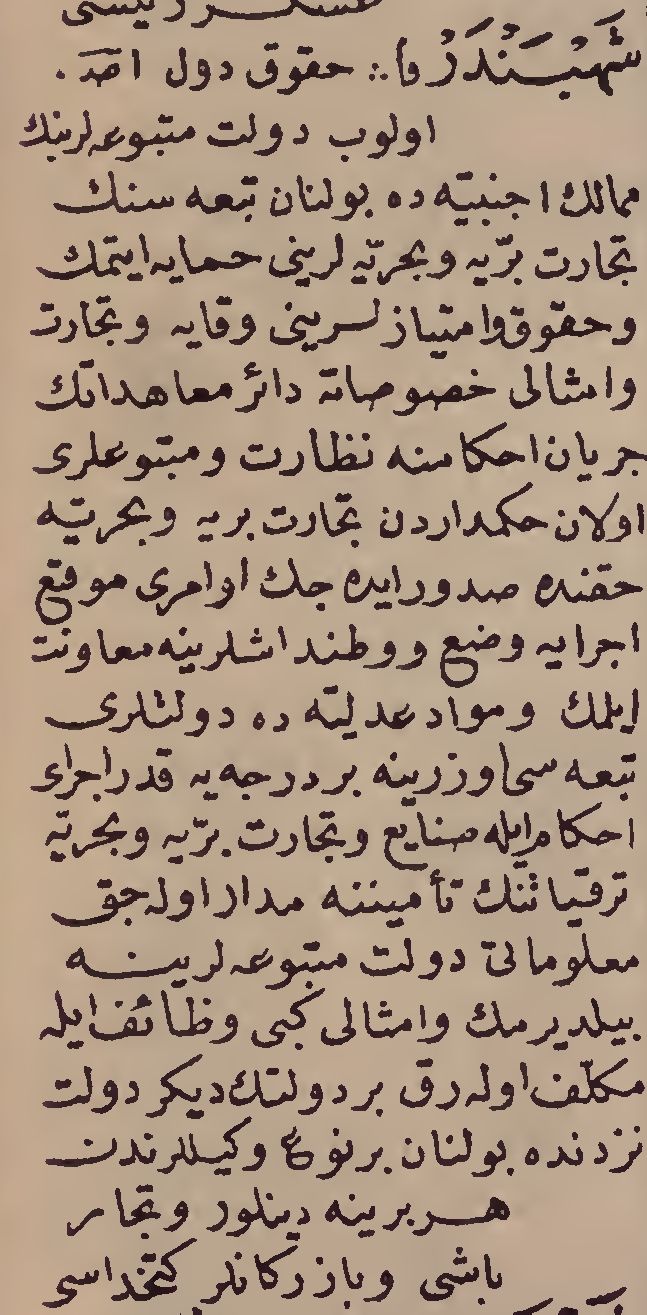 عسكر رئيسى
شَهْبَنْدَرْ فا ∴ حقوق دول .
اولوب دولت متبوعه لرينك
ممالك اجنبيّه ده بولنان تبعه سنك
تجارت برّيه وبحريّه لرينى حمايه ايتمك
وحقوق وامتياز لرينى وقايه وتجارت
وامثالى خصوصاته دائر معاهداتك
جريان احكامنه نظارت ومتبوعلرى
اولان حكمداردن تجارت بريه وبحريّه
حقنده صدور ايده جك اوامرى موقع
اجرايه وضع ووطنداشلرينه معاونت
ايلمك ومواد عدليّه ده دولتلرى
تبعه سى اوزرينه بر درجه يه قدر اجراى
احكام ايله صنايع وتجارت برّيه وبحريّه
ترقياتنك تأميننه مدار اوله جق
معلوماتى دولت متبوعه لرينه
بيلديرمك وامثالى كبى وظائف ايله
مكلّف اوله رق بر دولتك ديكر دولت
نزدنده بولنان بر نوع وكيللرندن
هر برينه دينلور وتجار
باشى وبازركانلر كتخداسى